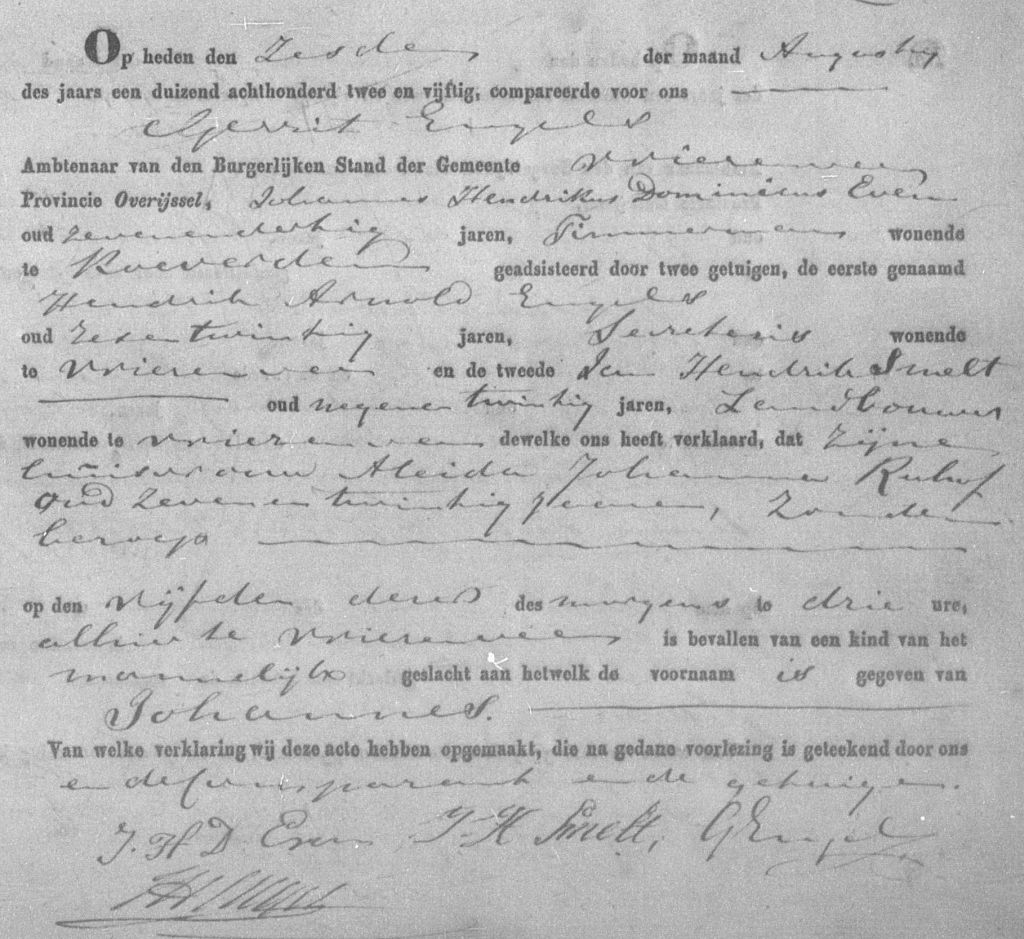 Op heden den Zesden der maand Augustus
des jaars een duizend achthonderd twee en vijftig, compareerde voor ons
Gerrit Engels
Ambtenaar van den Burgerlijken Stand der Gemeente Vriezenveen
Provincie Overijssel, Johannes Hendrikus Dominicus Even
oud zevenendertig jaren, Timmerman wonende
te Koeverden geadsisteerd door twee getuigen, de eerste genaamd
Hendrik Arnold Engels
oud zesentwintig jaren, Secretaris wonende
te Vriezenveen en de tweede Jan Hendrik Smelt
oud negenentwintig jaren, Landbouwer
wonende te Vriezenveen dewelke ons heeft verklaard, dat Zijne
huisvrouw Aleida Johanna
oud zevenentwintig jaren, Zonder
beroep
op den vijfden dezes des morgens te drie ure,
alhier te Vriezenveen is bevallen van een kind van het
mannelijk geslacht aan hetwelk de voornaam is gegeven van
Johannes.
Van welke verklaring wij deze acte hebben opgemaakt, die na gedane voorlezing is geteekend door ons
en de comparant en de getuigen.
J. H D Even J H Smelt, G Engels